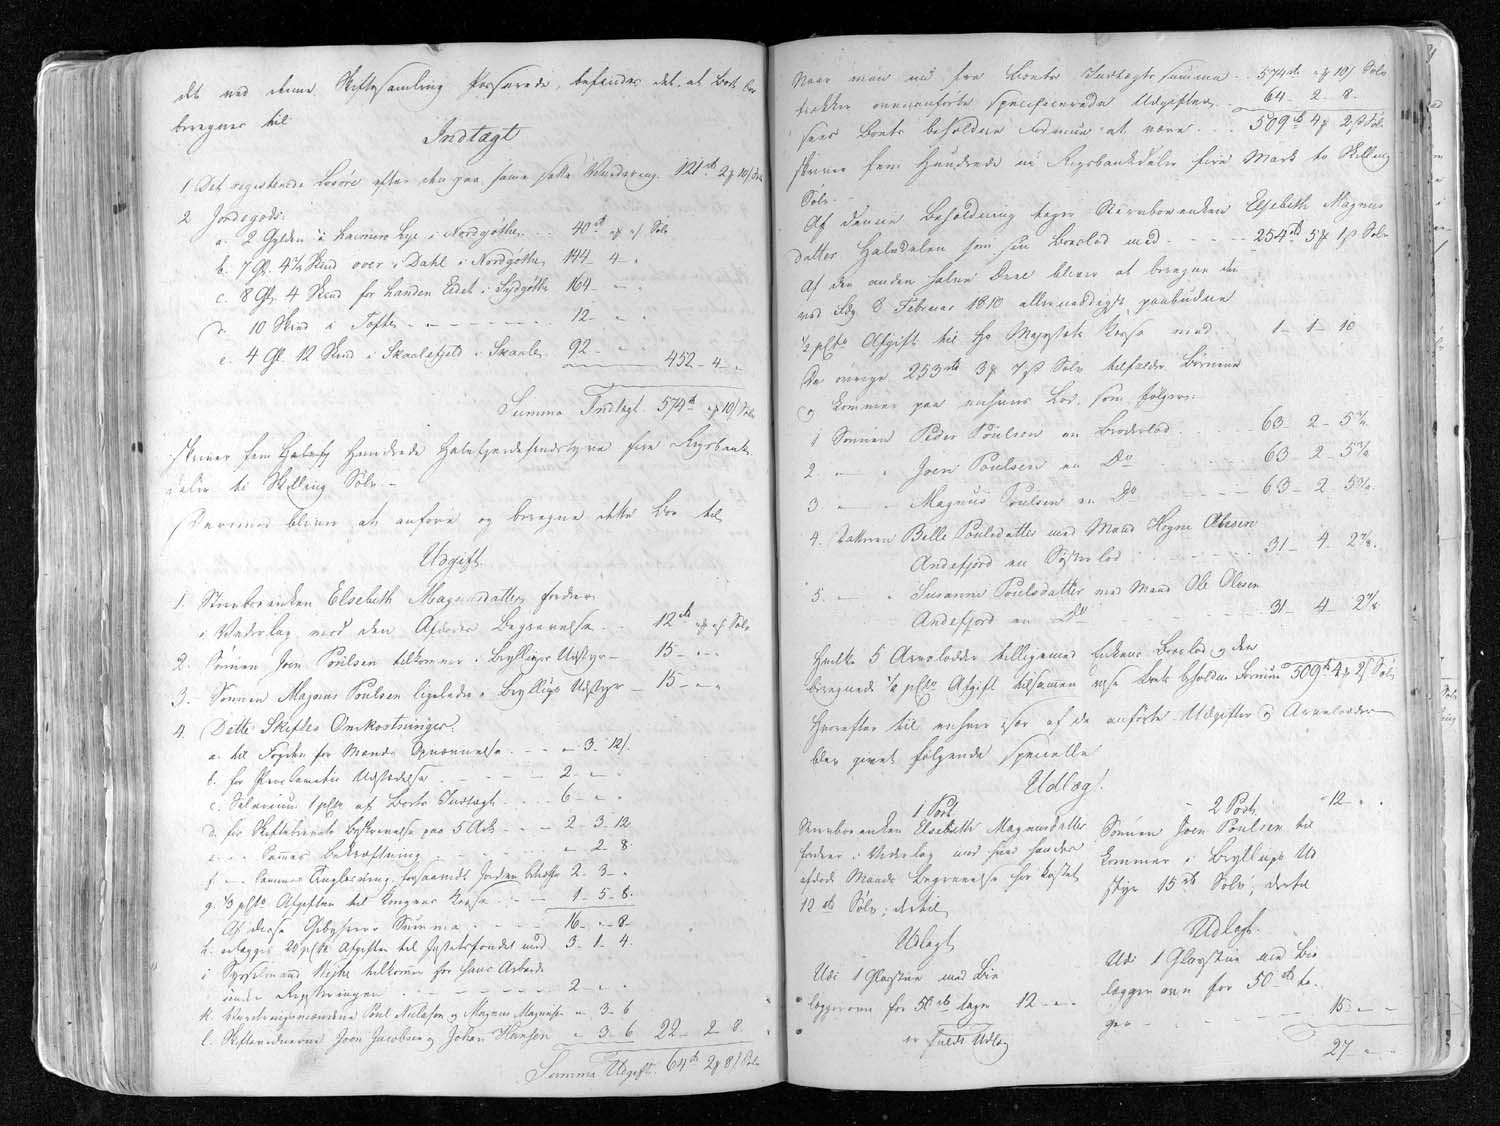 det ved denne Skiftesamling Passerede, befindes det, at Boets
beregnes til
Indtægt
1 Det registrerede Løsøre efter den paa samme satte Vurdering 121 rd 2 10
2 Jordegods.
a. 2 Gylden i Nordgøthe 40 Sølv
b. 7 Gl. 4½ Skind over i Dahl i Nordgøthe 144 4 "
c. 8 Gl. 4 Skind for handen Eidet i Sydgøthe 164 " "
d. 10 Skind i Tofte 12 " "
e. 4 Gl. 12 Skind i Skaalefjeld i Skaale 92 " 452 - 4 - "
Summa Indtægt. 574 10 Sølv
skriver fem Hundrede Halvfjerdesindstyve fire Rigsbank
daler ti Skilling Sølv -
Derimod bliver at anføre og beregne dette Boe til
Udgift
1. Stervboenken Elsebeth Magnusdatter fordrer
i Vederlag mod den Afdødes Begravelse 12 Sølv
2. Sønnen Joen Poulsen tilkommer i Bryllups Udstyr 15 - "
3. Sønnen Magnus Poulsen ligeledes i Bryllups Udstyr 15 - "
4. Dette Skiftes Omkostninger.
a. til Fogden for Mænds Opnævnelse " 3 - 12
b. for Proclamatis Udstedelse 2 - " -
c. Salarium 1 pCto af Boets Indtægt 6 - "
d. for Skiftebrevets Beskrivelse paa 5 Ark 2 - 3 - 12
e. Sammes Bekræftning " 2 8
f. Sammes Tinglæsning, forsaavidt Jorden betreffer 2 - 3 - "
g. 1/3 pCto Afgiften til Kongens Kasse 1 - 5 - 8
Af disse Gebyhrers Summa 16 - " - 8
h. erlægges 20 pCto Afgiften til Justitsfondet med 3 - 1 - 4.
i Sysselmand tilkommer for hans Arbeide
under Registeringen 2 - "
k. Vurderingsmændene Poul Niclasen og Magnus Magnusen " 3 - 6
l. Skiftevidnerne Joen Jacobsen og Johan Hansen " 3 - 6 22 - 2 - 8
Summa Udgift. 64 2 8 Sølv
Naar man nu fra Boets Indtægts Summa 574 10 Sølv
trækker ovenanførte specificerede Udgifter 64 - 2 - 8.
sees Boets beholdne Formue at være 509 4 2 Sølv
skriver fem Hundrede ni Rigsbankdaler fire Mark to Skilling
Sølv -
Af denne Beholdning tager Stervboenken Elsebeth Magnus
datter som sin Boeslod med 254 5 1 Sølv
Af den anden halve Deel bliver at beregne den
ved Fdg 8 Februar 1810 allernaadigst paabudne
½ pCto Afgift til Hs Majestets Kasse med 1 - 1 - 10
De øvrige 253 3 7 Sølv tilfalder Børnene
og kommer paa enhvers Lod, som følger:
1 Sønnen Peder Poulsen en Broderlod 63 - 2 - 5
2. — " Joen Poulsen en Do 63 2 - 5
3 — " Magnus Poulsen en Do 63 - 2 5
4. Datteren Belle Poulsdatter med Mand Hogne Olesen
Andefjord en Søsterlod 31 - 4 - 2
5. — " Susanne Poulsdatter med Mand Ole Olesen
Andefjord en Do 31 - 4 - 2
Hvilke 5 Arvelodder tilligemed Enkens Boeslod og den
beregnede ½ pCto Afgift tilsammen Boets beholdne Formue 509 4 2 Sølv
Herefter til enhver især af de anførte Udgifter og Arvelodder
blev givet følgende specielle
Udlæg!
1 Post.
Stervboenken Elsebeth Magnusdatter
fordrer i Vederlag mod hvad hendes
afdøde Mands Begravelse har kostet
12 rd Sølv; dertil
Udlagt
Udi 1 Glasstue med Bie
læggerovn for 50 tages 12 - " -
er fuldt Udlæg
2 Post. 12 - " "
Sønnen Joen Poulsen til
kommer i Bryllups Ud
styr 15 rd Sølv; dertil
Udlagt.
Udi 1 Glasstue med Bie
læggerovn for 50 ta
ges 15 - " -
27 - " - "